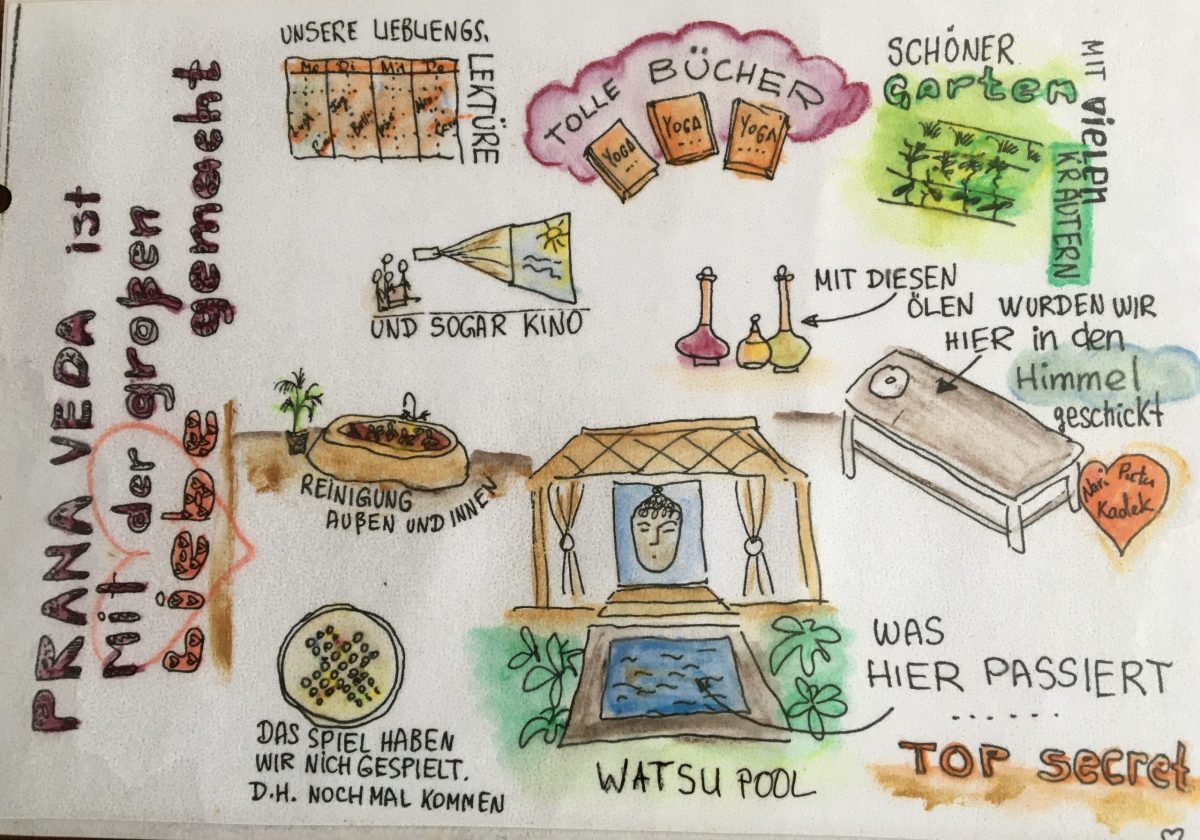 PRANA VEDA ist
Mit der großen
Liebe gemacht
UNSERE LIEBLIENGS.
LEKTÜRE
Mo Di Mit Do
TOLLE BÜCHER
YOGA
YOGA
YOGA
SCHÖNER
Garten
MIT VIELEN
KRÄUTERN
UND SOGAR KINO
MIT DIESEN
ÖLEN WURDEN WIR
HIER in den
Himmel
geschickt
REINIGUNG
AUßEN UND INNEN
Kadek
DAS SPIEL HABEN
WIR NICH GESPIELT.
D.H. NOCHMAL KOMMEN
WATSU POOL
WAS
HIER PASSIERT
......
TOP secret